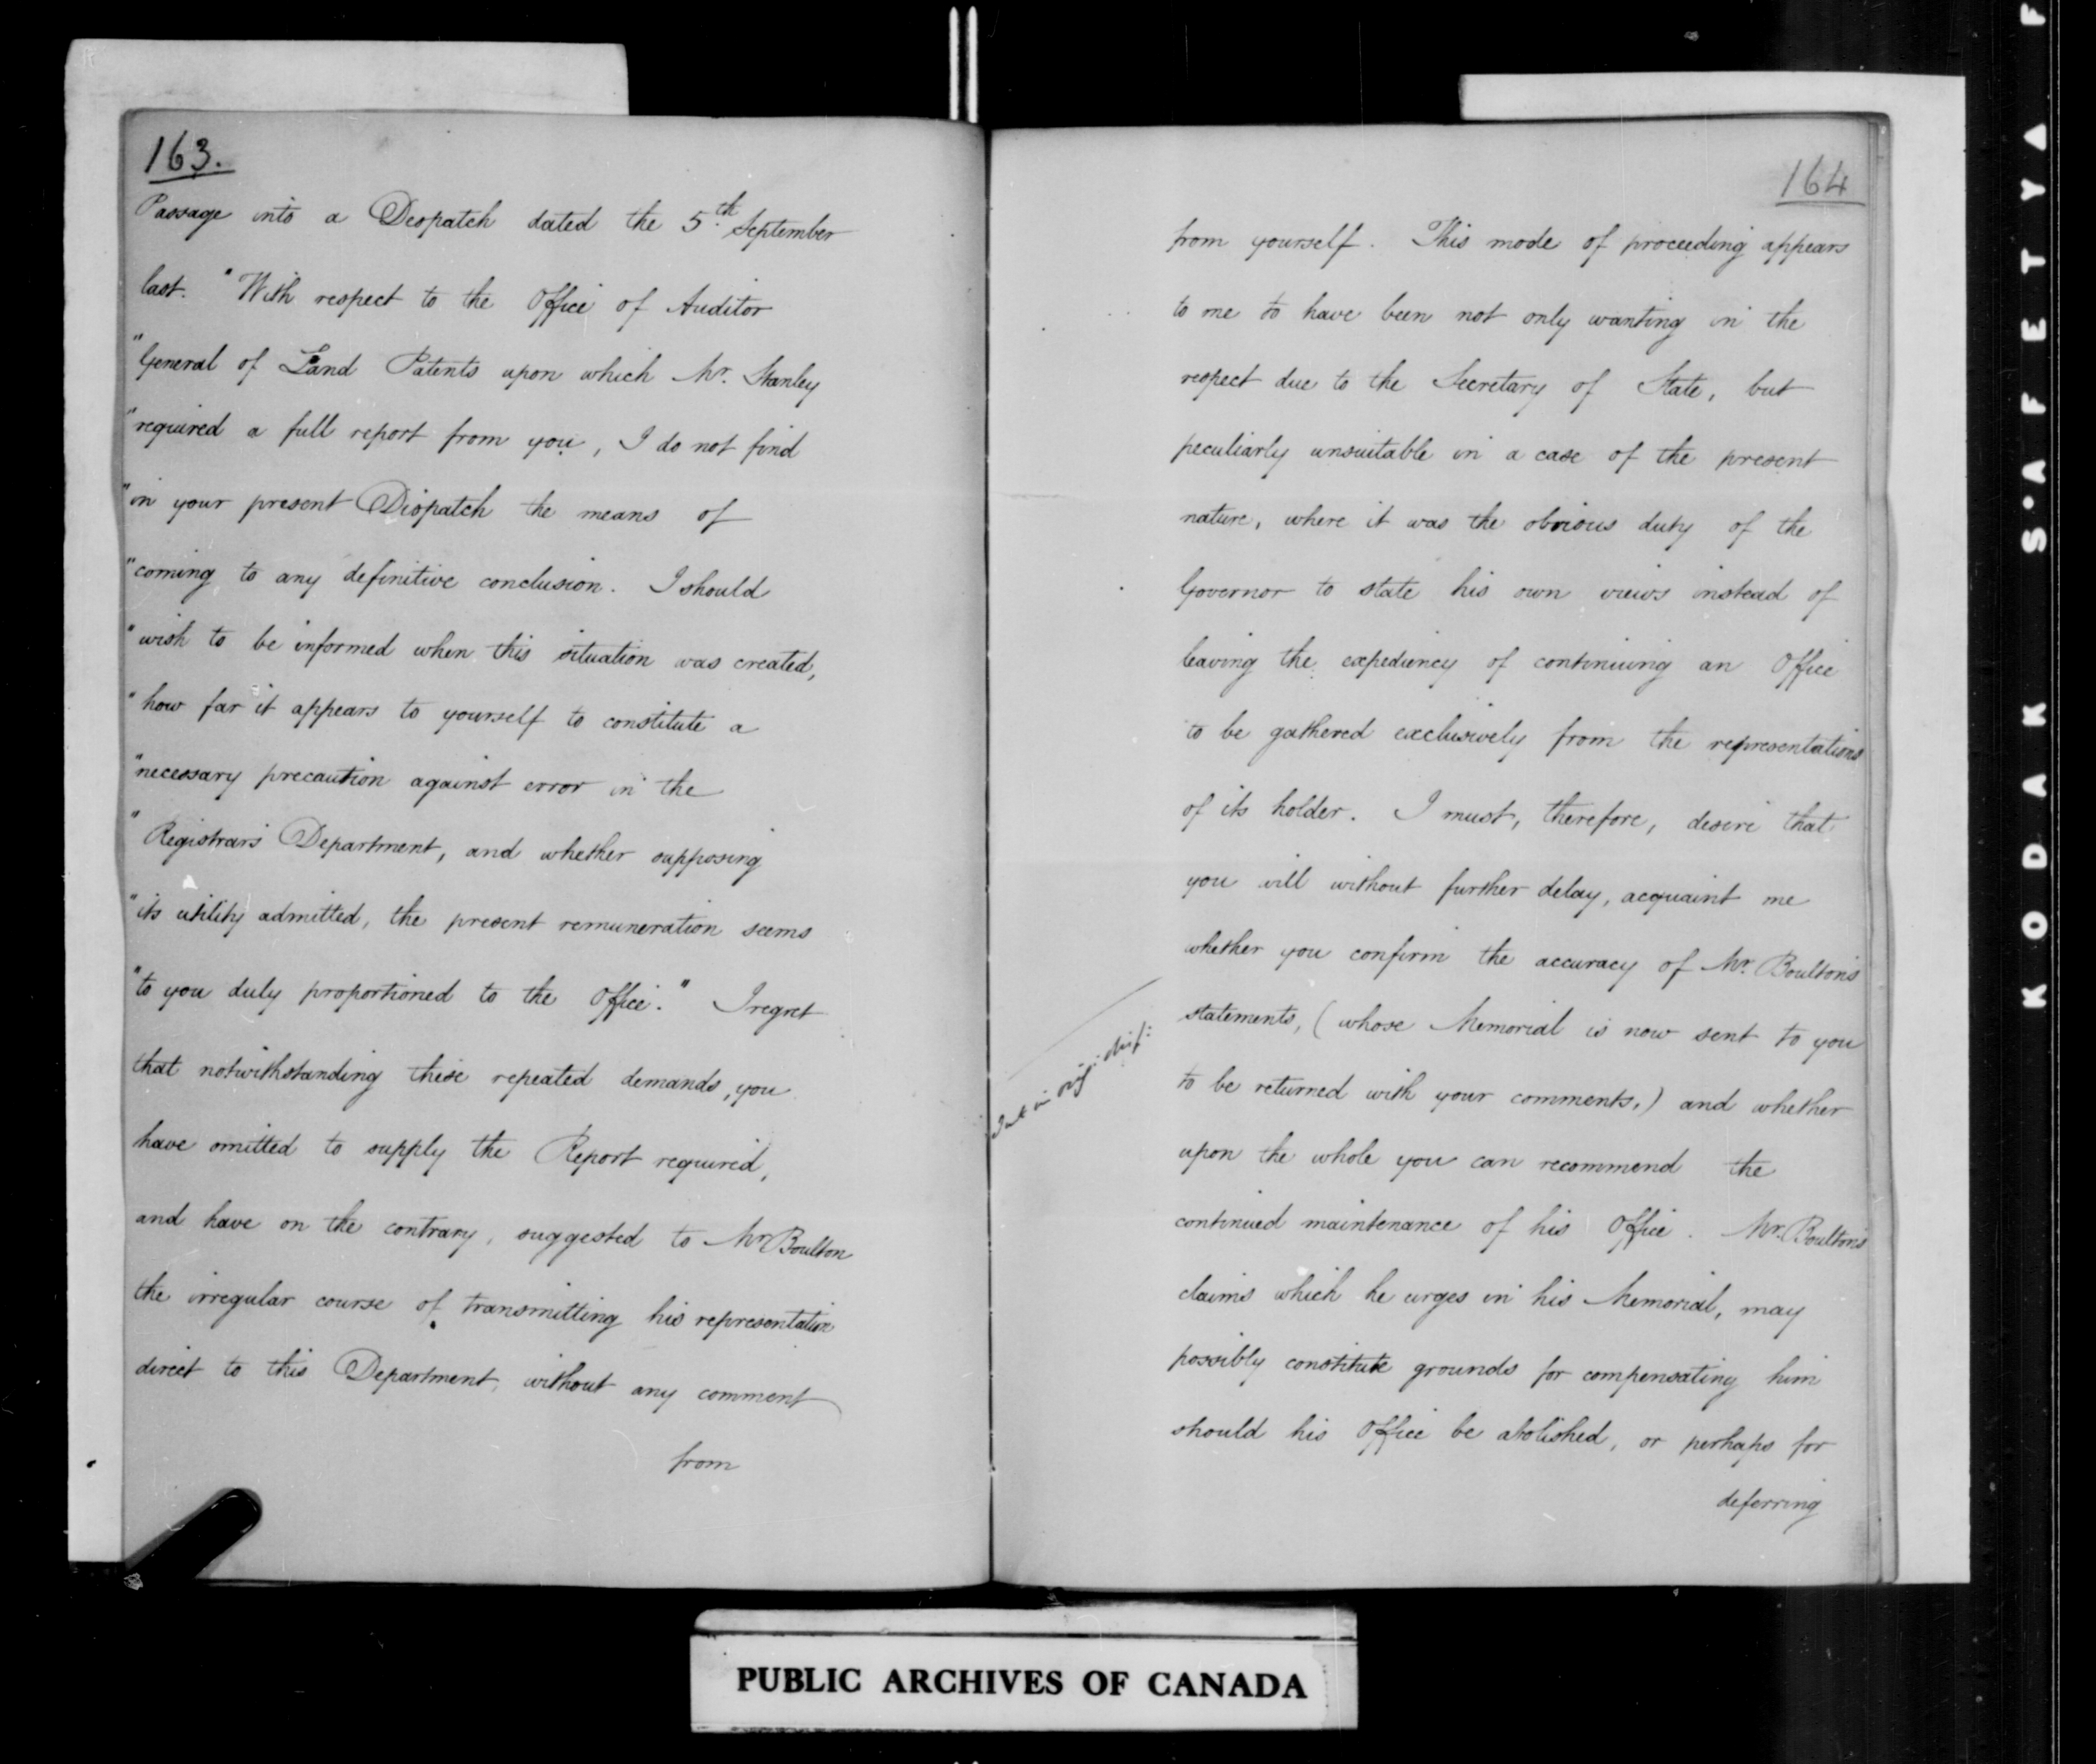 163.
Passage into a Despatch dated the 5th September
last. "With respect to the Office of Auditor
"General of Land Patents upon which Mr. Stanley
"required a full report from you, I do not find
"in your present Dispatch the means of
"coming to any definitive conclusion. I should
"wish to be informed when this situation was created,
"how far it appears to yourself to constitute a
"necessary precaution against error in the
"Registrar's Department, and whether supposing
"its utility admitted, the present remuneration seems
"to you duly proportioned to the Office." I regret
that notwithstanding these repeated demands, you
have omitted to supply the Report required,
and have on the contrary, suggested to Mr Boulton
the irregular course of transmitting his representation
direct to this Department, without any comment
from
164
from yourself. This mode of proceeding appears
to me to have been not only wanting in the
respect due to the Secretary of State, but
peculiarly unsuitable in a case of the present
nature, where it was the obvious duty of the
Governor to state his own views instead of
leaving the expediency of continuing an Office
to be gathered exclusively from the representations
of its holder. I must, therefore, desire that
you will without further delay, acquaint me
whether you confirm the accuracy of Mr. Boulton's
statements, (whose Memorial is now sent to you
to be returned with your comments,) and whether
upon the whole you can recommend the
continued maintenance of his Office. Mr. Boulton's
claims which he urges in his Memorial, may
possibly constitute grounds for compensating him
should his Office be abolished, or perhaps for
deferring
PUBLIC ARCHIVES OF CANADA
KODAK S'AFETY F